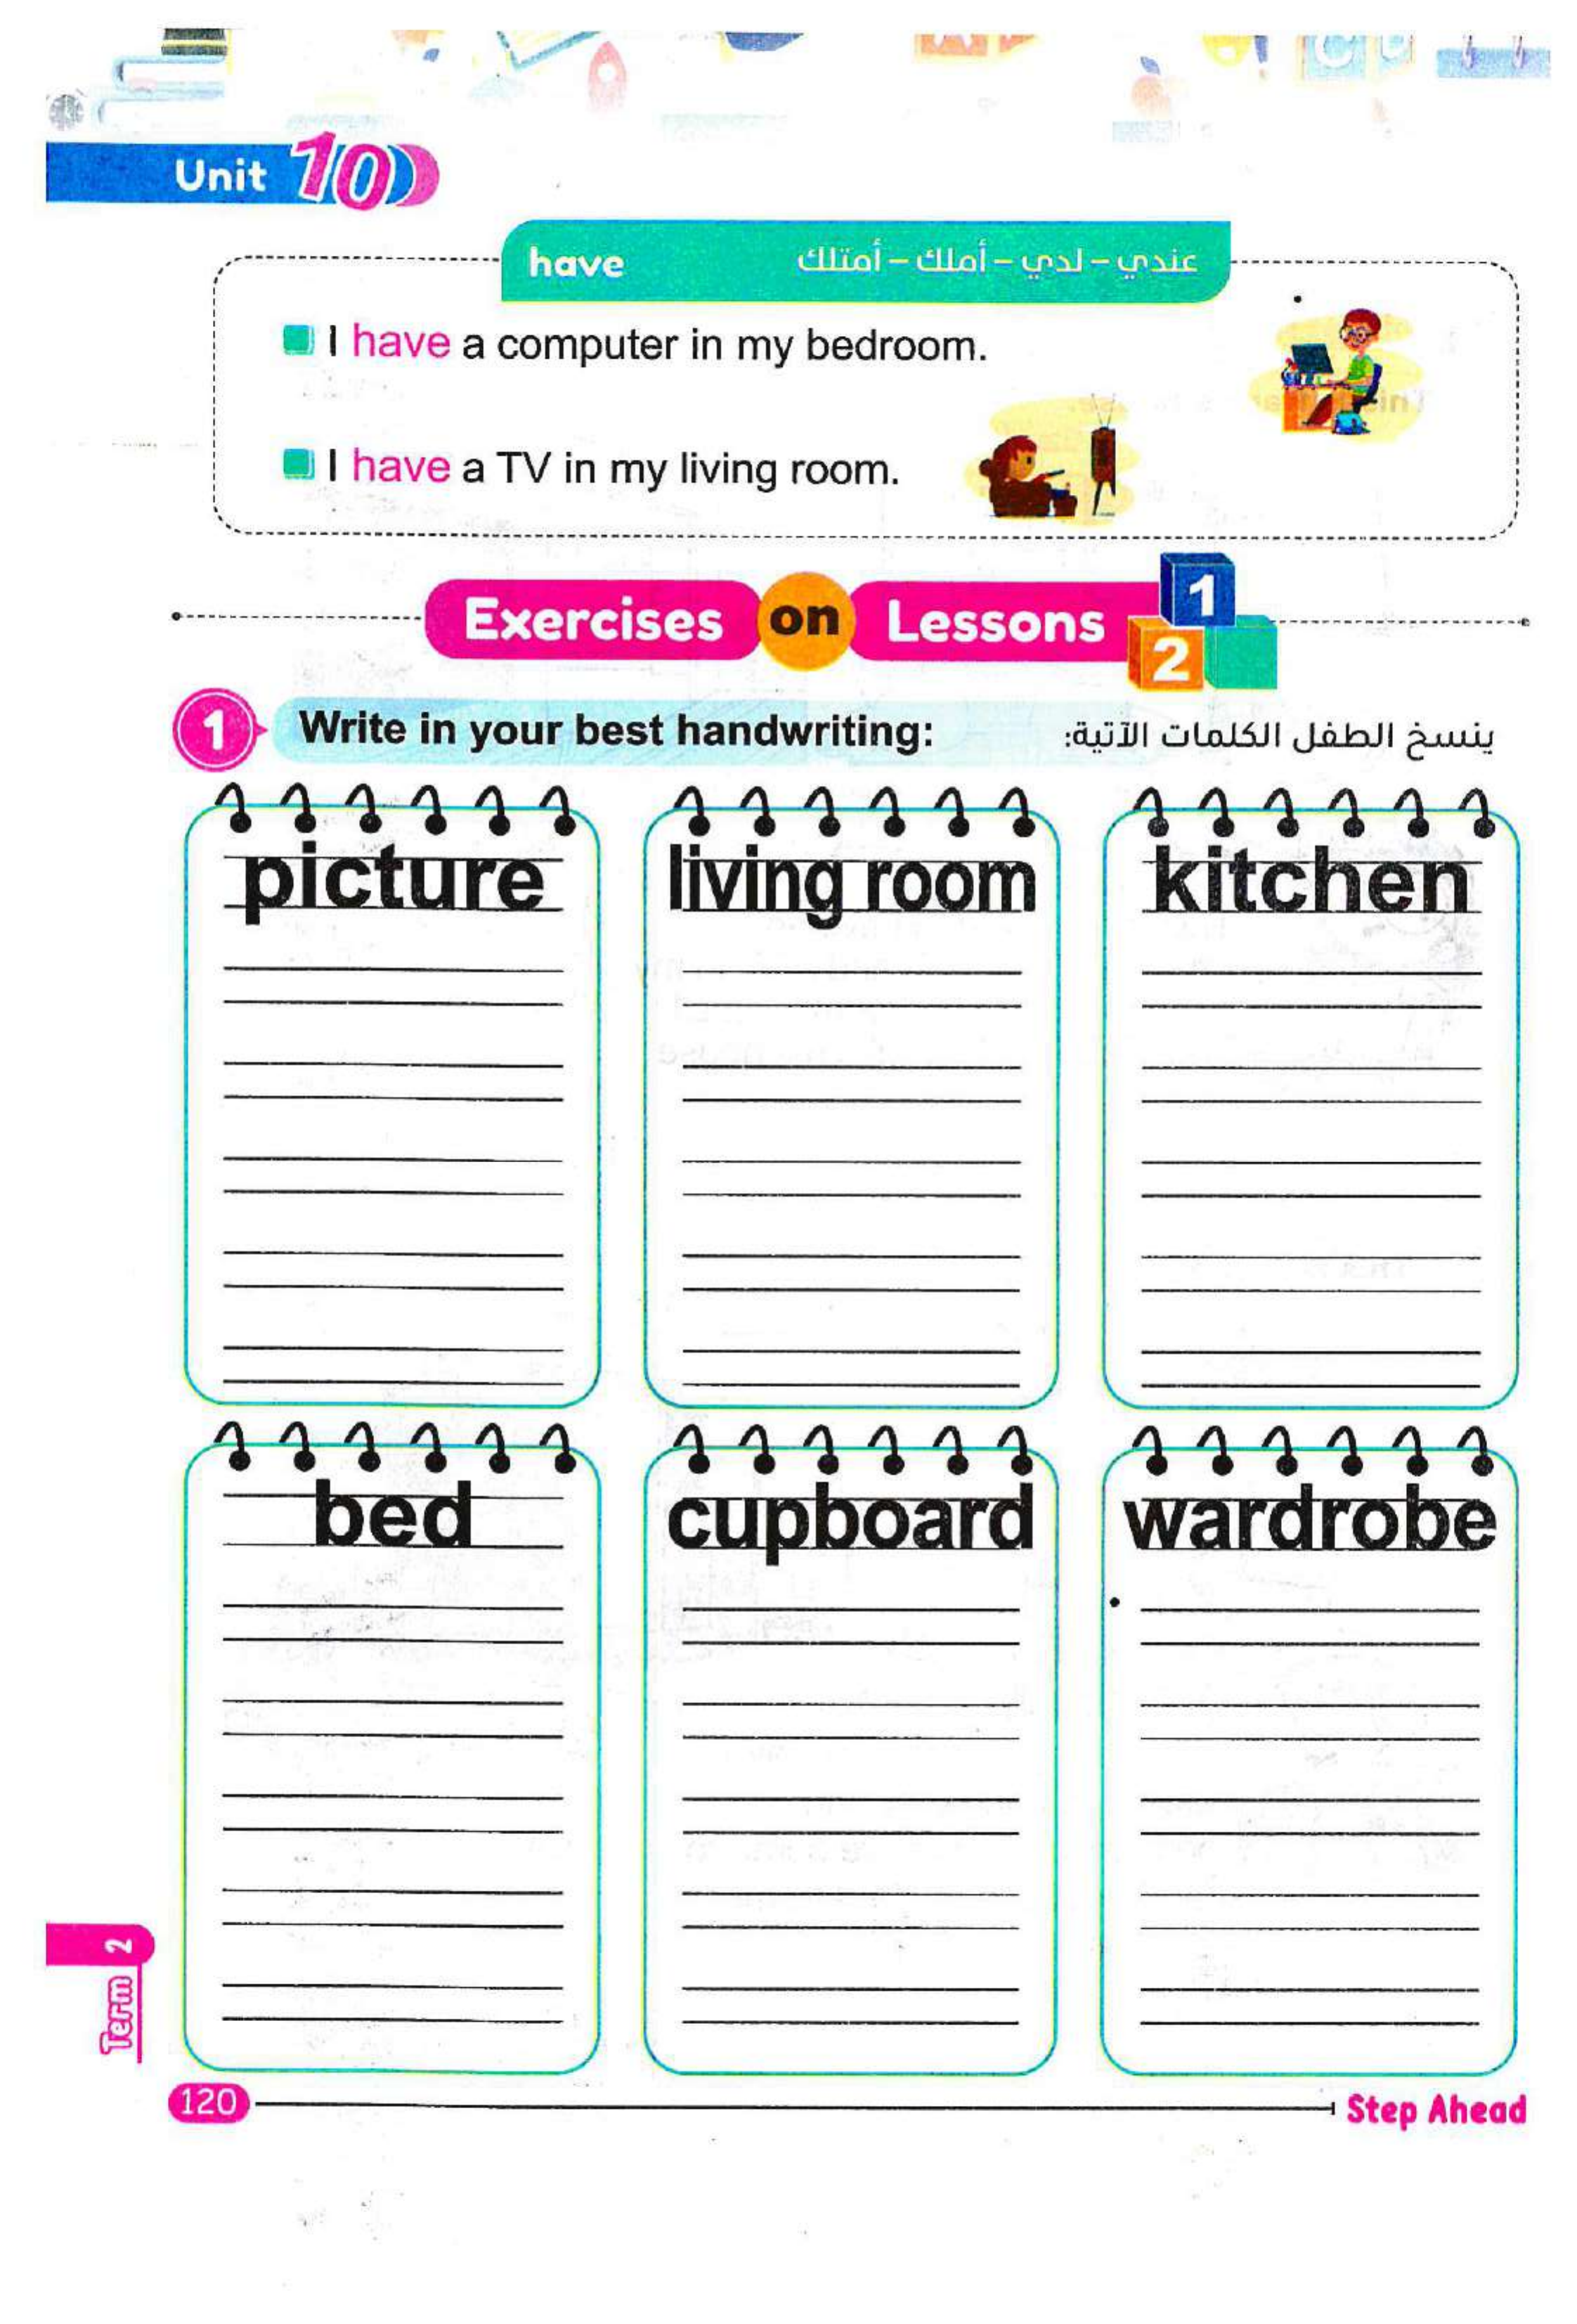 Unit 10
have
عندي - لدي - أملك - أمتلك
I have a computer in my bedroom.
I have a TV in my living room.
Exercises on Lessons 1 2
1 Write in your best handwriting:
ينسخ الطفل الكلمات الآتية:
picture
living room
kitchen
bed
cupboard
wardrobe
Term 2
120
Step Ahead